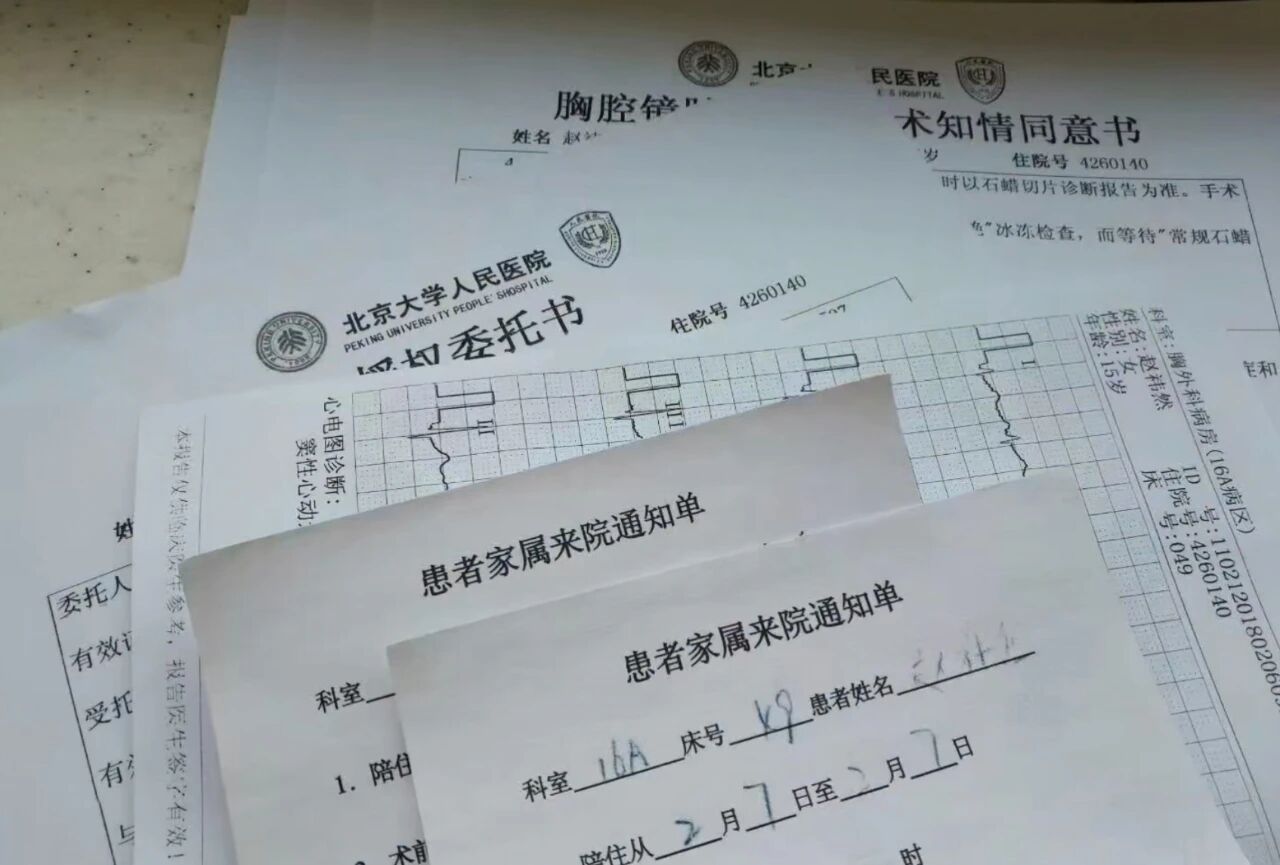 北京
民医院
E'S HOSPITAL
胸腔镜
术知情同意书
姓名 赵
岁
住院号 4260140
时以石蜡切片诊断报告为准。手术
"冰冻检查，而等待"常规石蜡
北京大学人民医院
PEKING UNIVERSITY PEOPLE'SHOSPITAL
授权委托书
住院号 4260140
科室:胸外科病房(16A病区)
姓名:赵祎然
ID 号:11021201802060
性别:女
住院号:4260140
年龄:15岁
床 号:049
I
II
III
心电图诊断:
窦性心动
本报告仅供临床医生参考，报告医生签字有效！
姓
委托人
有效
受托
有效
与
患者家属来院通知单
科室
1. 陪住
术前
患者家属来院通知单
科室 16A 床号 49 患者姓名
陪住从 2 月 7 日至 2 月 7 日
时